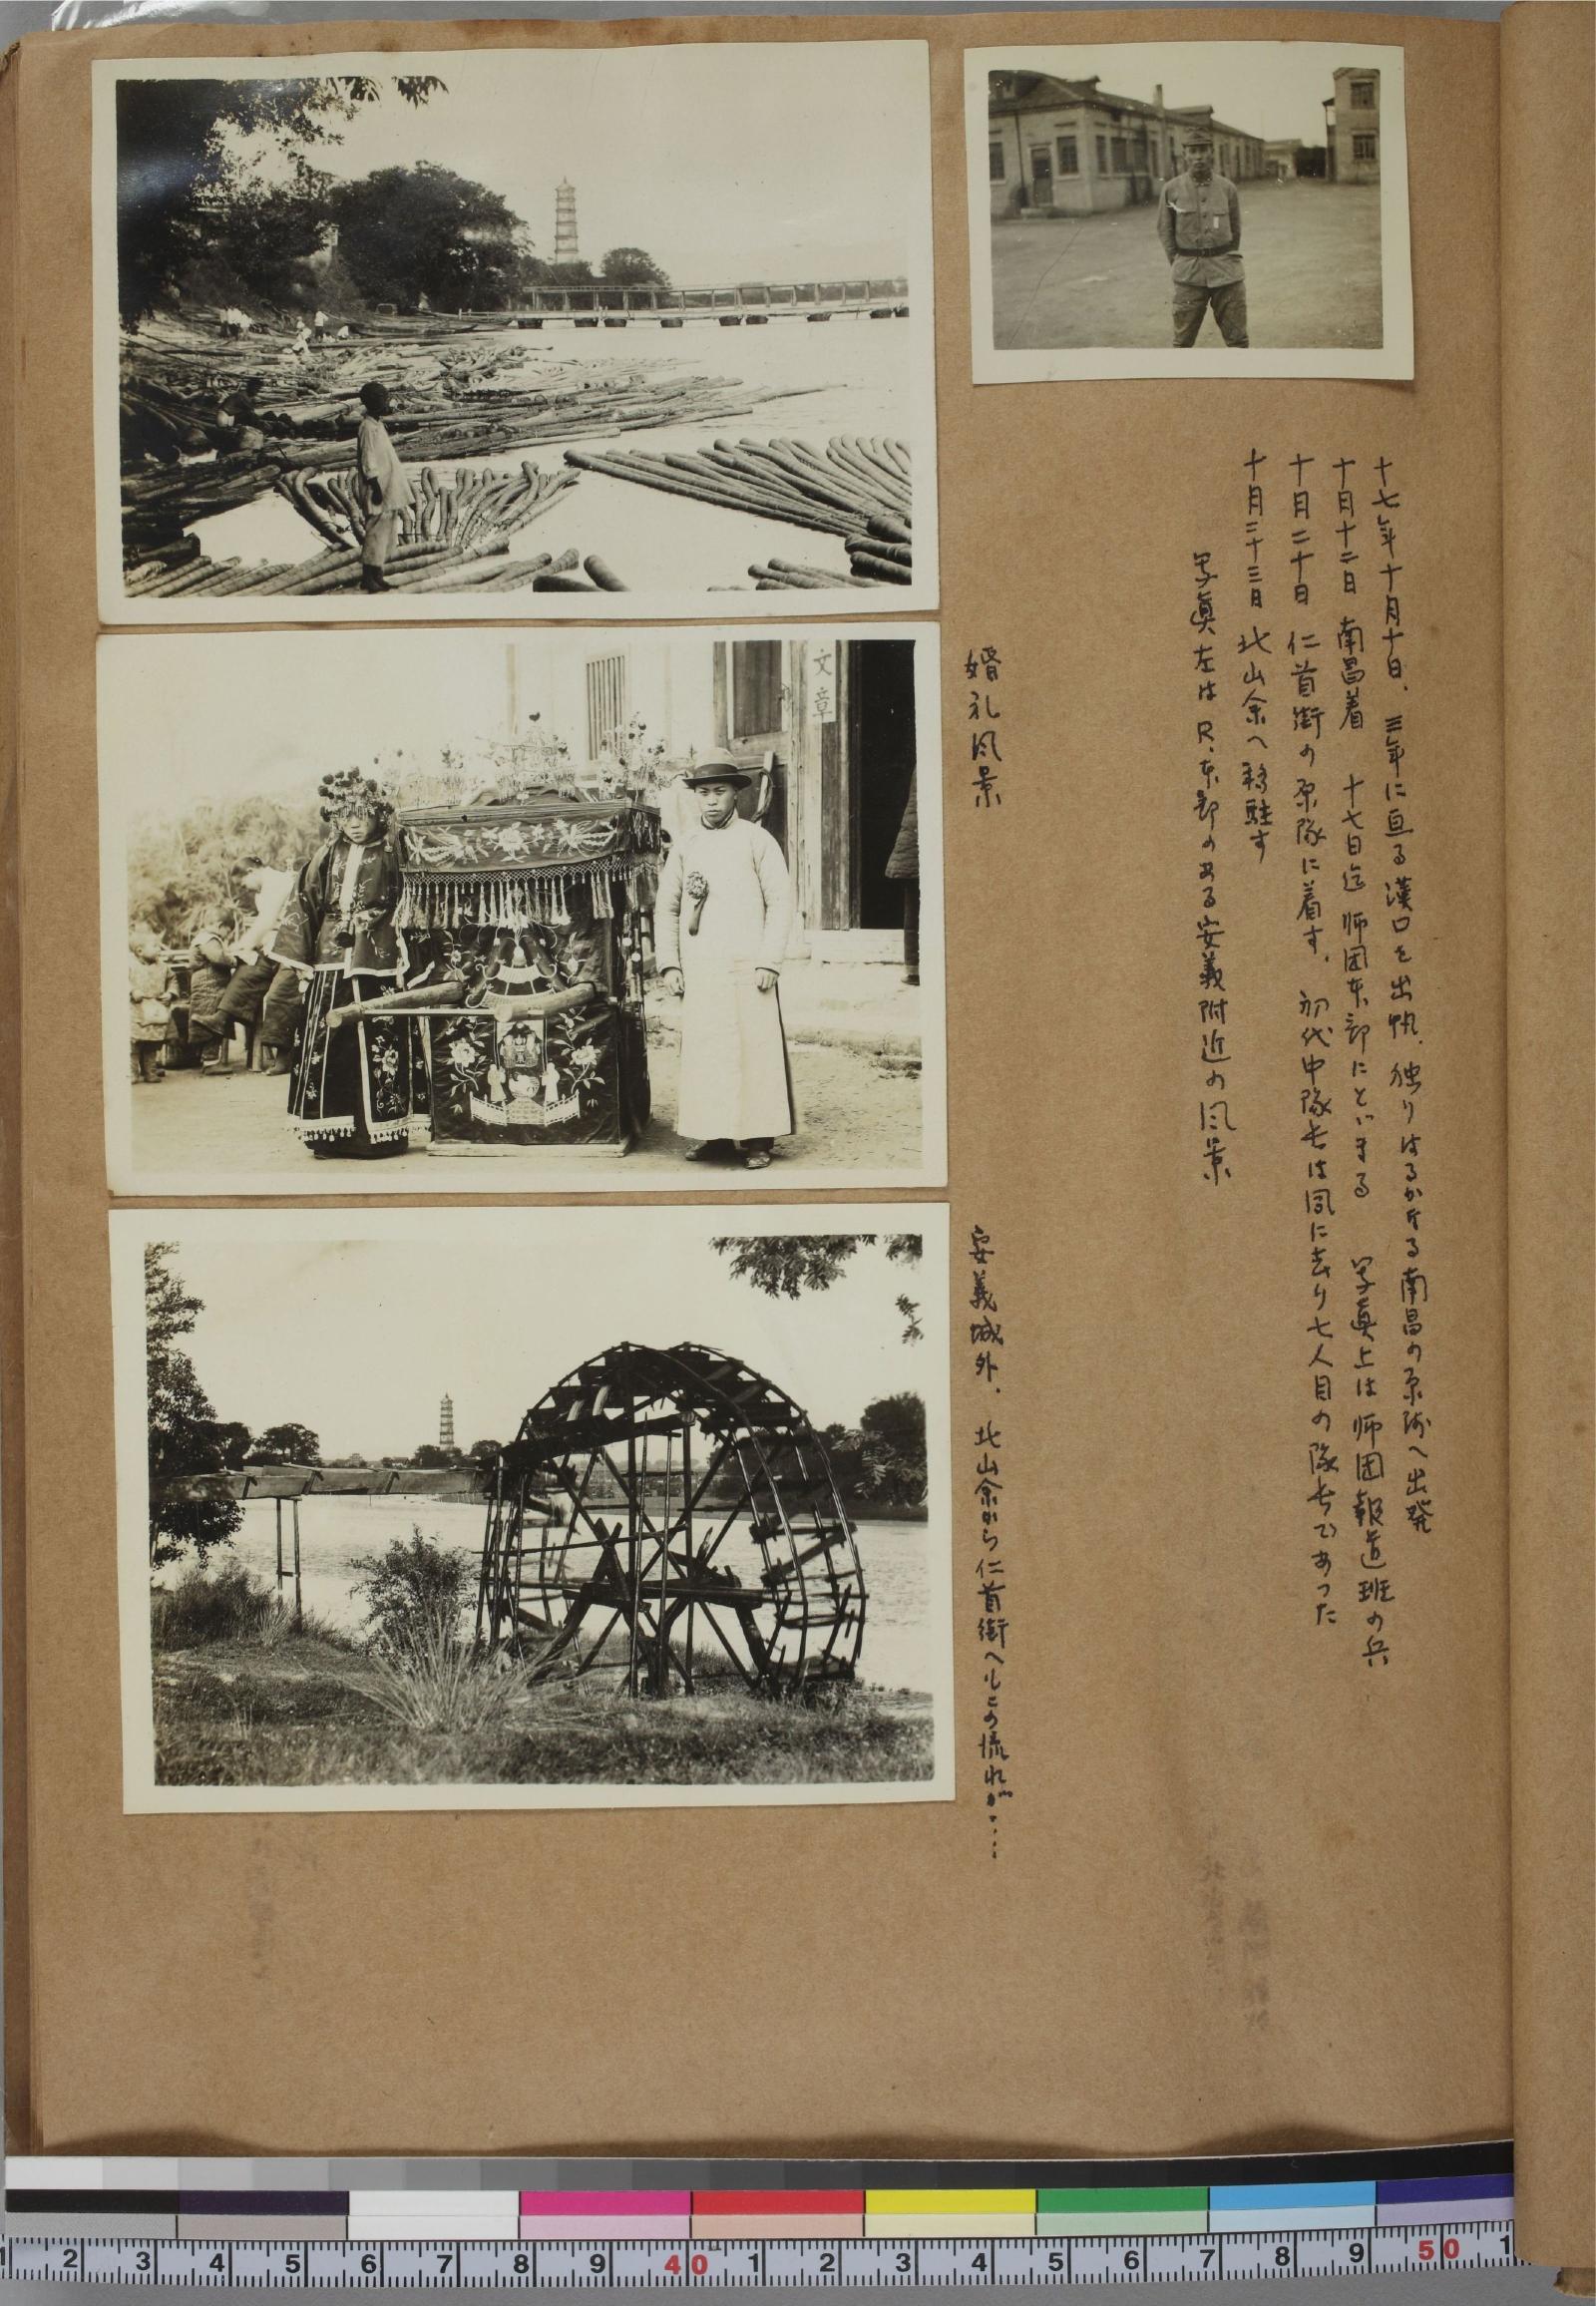 十七年十月十日、三年に亘る漢口を出帆、独りはるかなる南昌の原隊へ出発
十月十二日 南昌着 十七日迄 師団本部にとゞまる 写真上は師団報道班の兵
十月二十日 仁首街の原隊に着す、初代中隊長は間に去り七人目の隊長であった
十月二十三日 北山余へ移駐す
写真左は R.本部のある安義附近の風景
婚礼風景
文章
安義城外、北山余から仁首街へもこの流れが‥‥
2 3 4 5 6 7 8 9 40 1 2 3 4 5 6 7 8 9 50 1